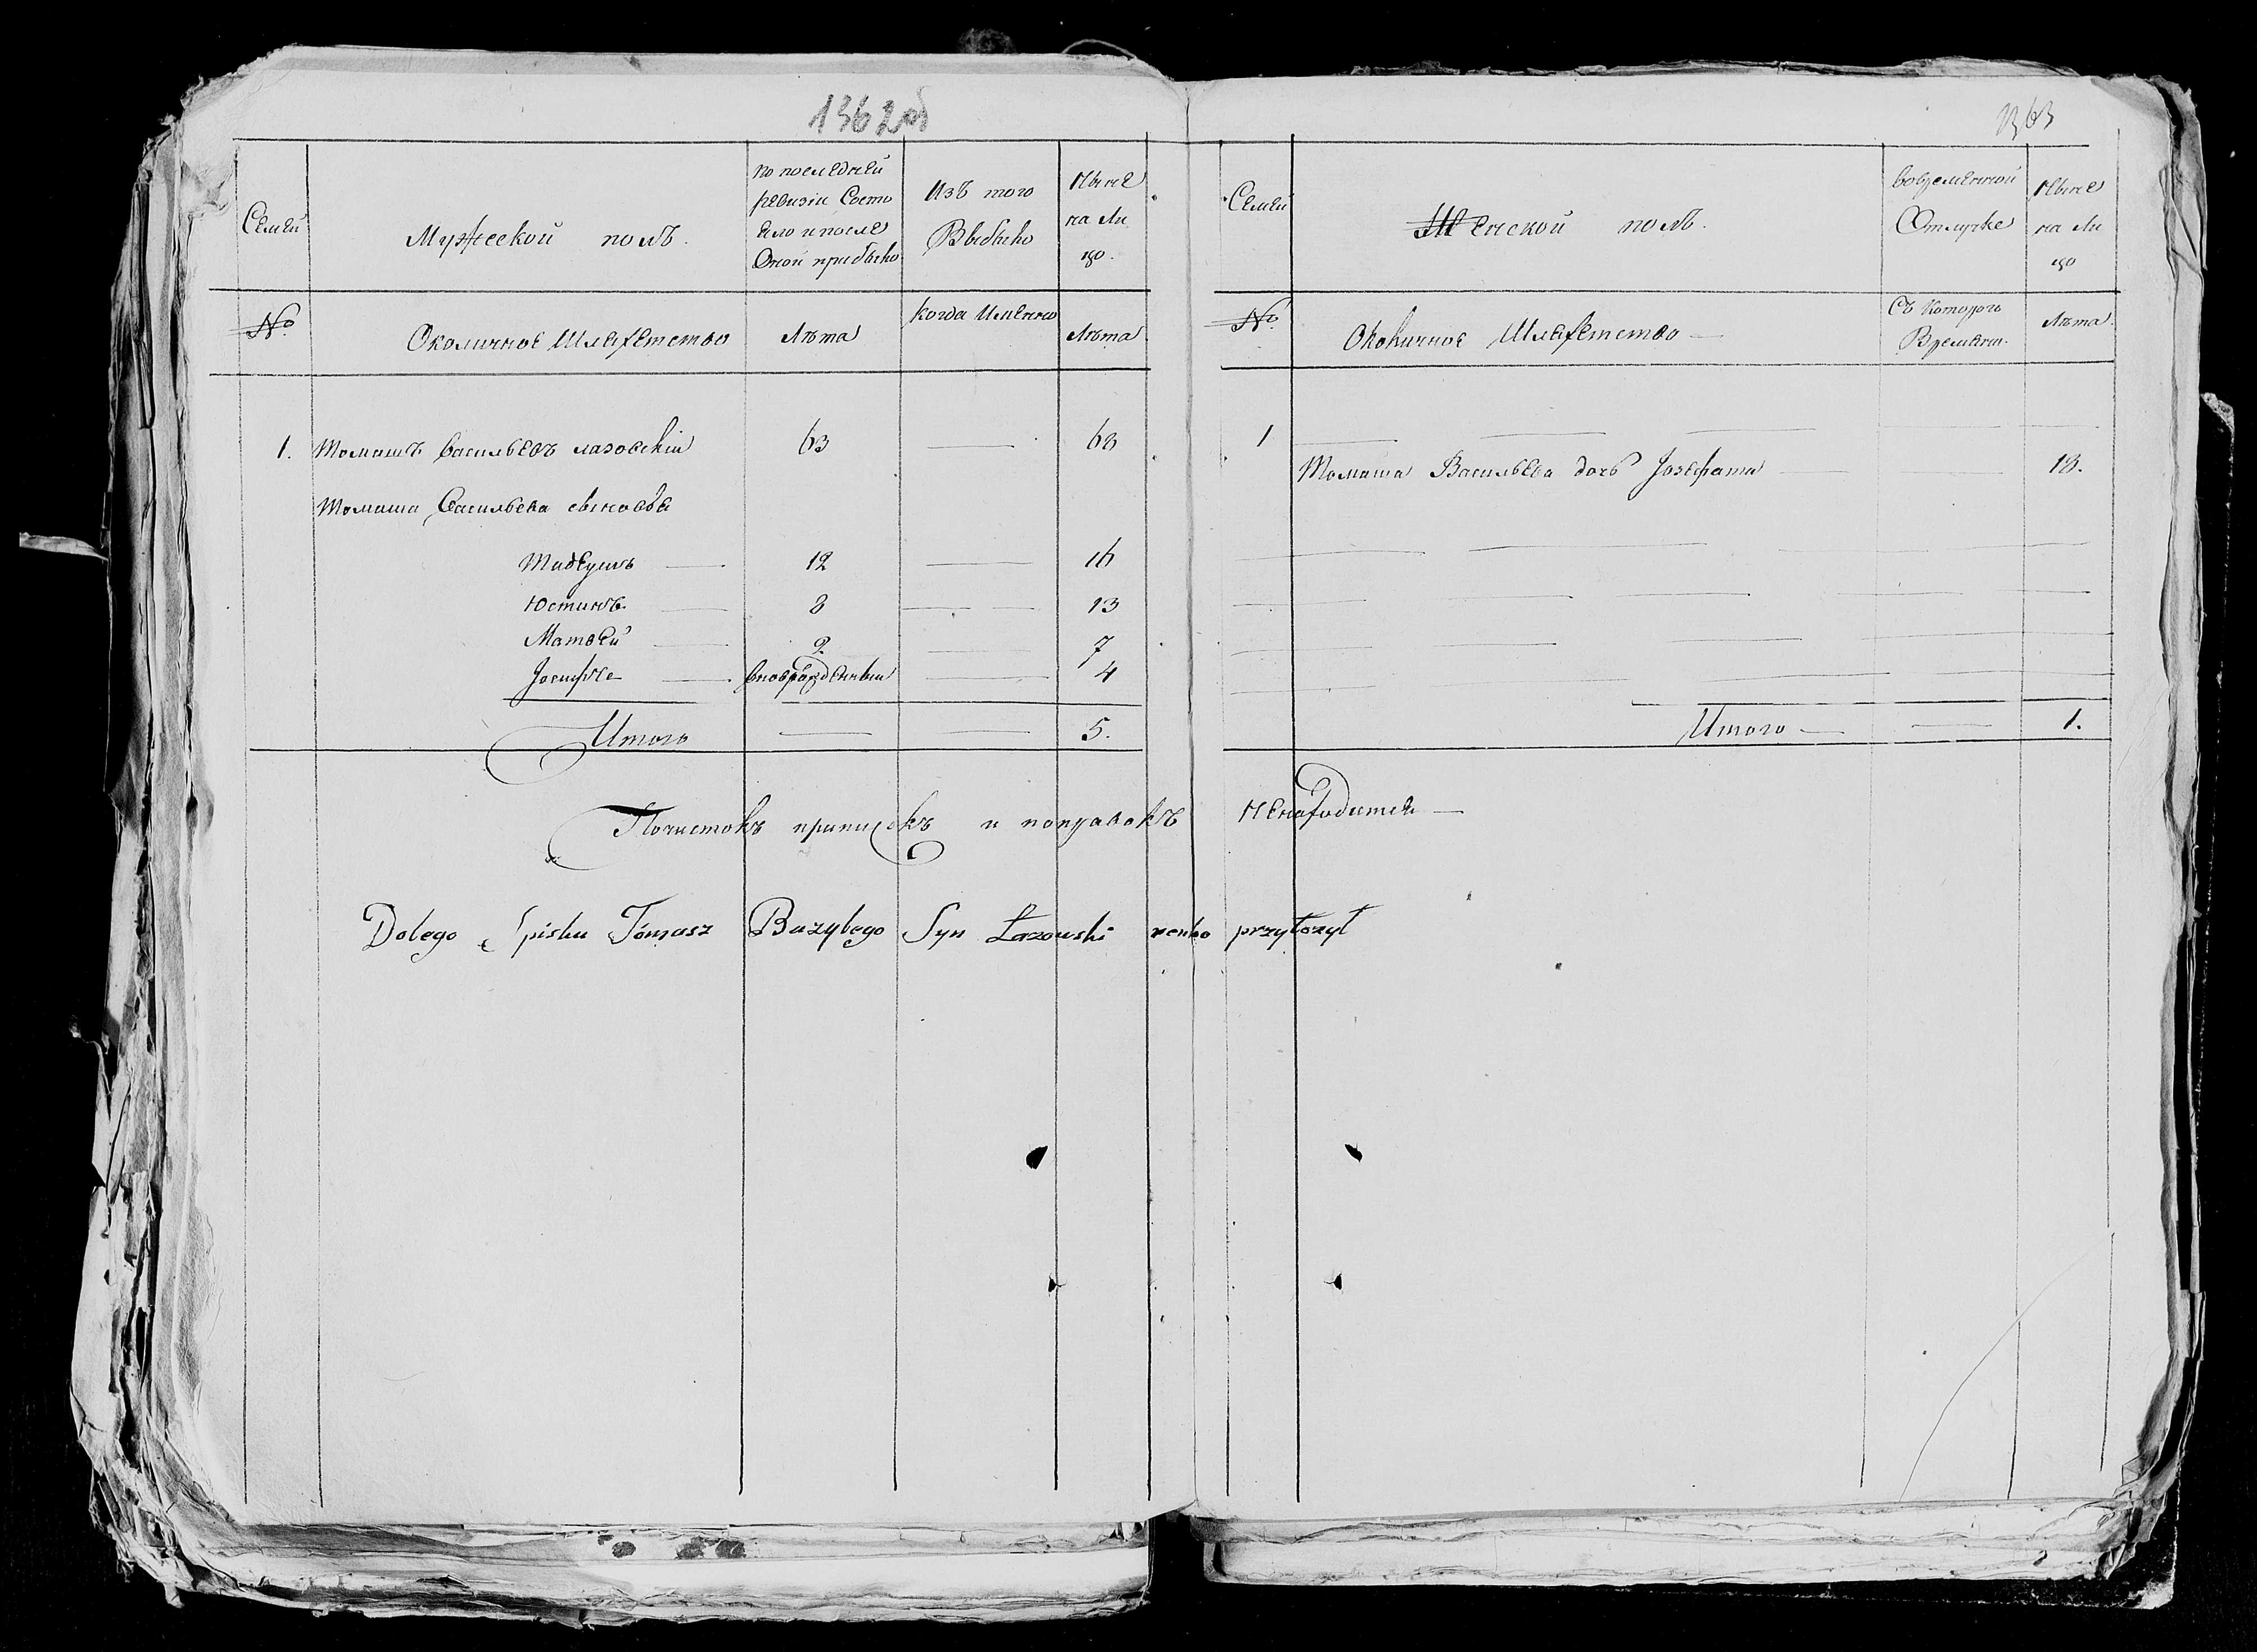 1362об
1363
Семьи
Мужеской полъ.
по последней
ревизии Состо
яло и после
Оной прибыло
Изъ того
Выбыло
Ныне
на ли
цо.
№
Околичное Шляхетство
Лѣта
когда Именно
Лѣта
1. Томашъ Васильевъ лазовскiи 63 — 68
Томаша Васильева сыновья
Тадеушъ — 12 — 16
Юстинъ — 8 — 13
Матвей — 2 — 7
Iосифъ — вноврожденныи — 4
Итого — — 5.
Семьи
Женской полъ.
вовременной
Отлучке
Ныне
на ли
цо
№
Околичное Шляхетство —
Съ Которого
Времени.
Лѣта.
1
Томаша Васильева дочь Iозефата — — 18.
Итого — — 1.
Почистокъ приписокъ и поправокъ ненаходится —
Dolego Spisku Tomasz Bazylego Syn Łazowski renko przyłozył